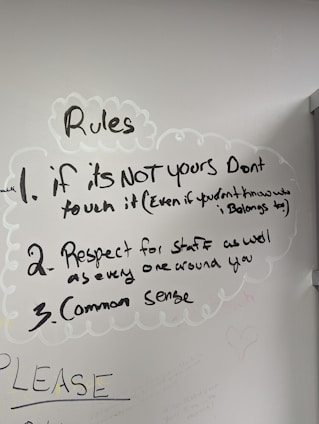 Rules
1. if its NOT yours Dont
touch it (Even if you dont know who
i Belongs too)
2. Respect for staff as well
as every one around you
3. Common sense
PLEASE